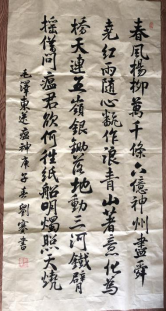 春風楊柳萬千條六億神州盡舜
堯紅雨隨心翻作浪青山著意化為
橋天連五嶺銀鋤落地動三河鐵臂
搖借問瘟君欲何往紙船明燭照天燒
毛澤東送瘟神庚子春劉書